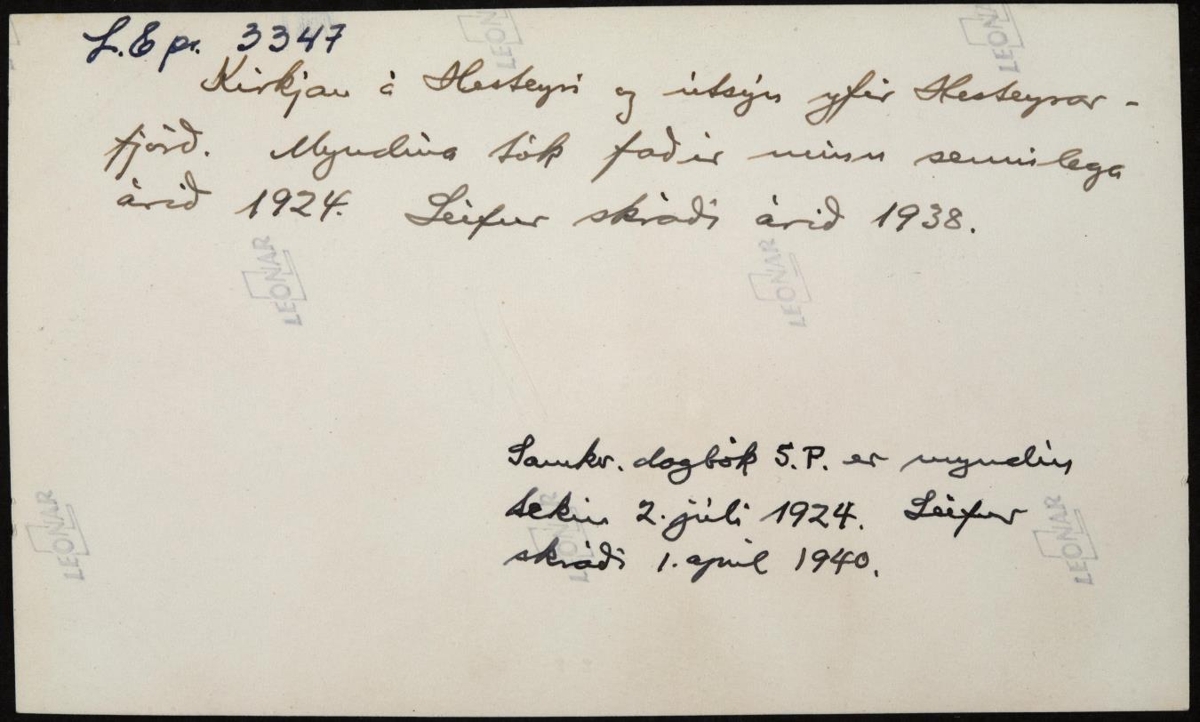 L.E pr. 3347
Kirkjan á Hesteyri og útsýn yfir Hesteyrar-
fjörð. Myndina tók faðir minn sennilega
árið 1924. Leifur skráði árið 1938.
LEONAR
LEONAR
LEONAR
LEONAR
Samkv. dagbók S.P. er myndin
tekin 2. júlí 1924. Leifur
skráði 1. apríl 1940.
LEONAR
LEONAR
LEONAR